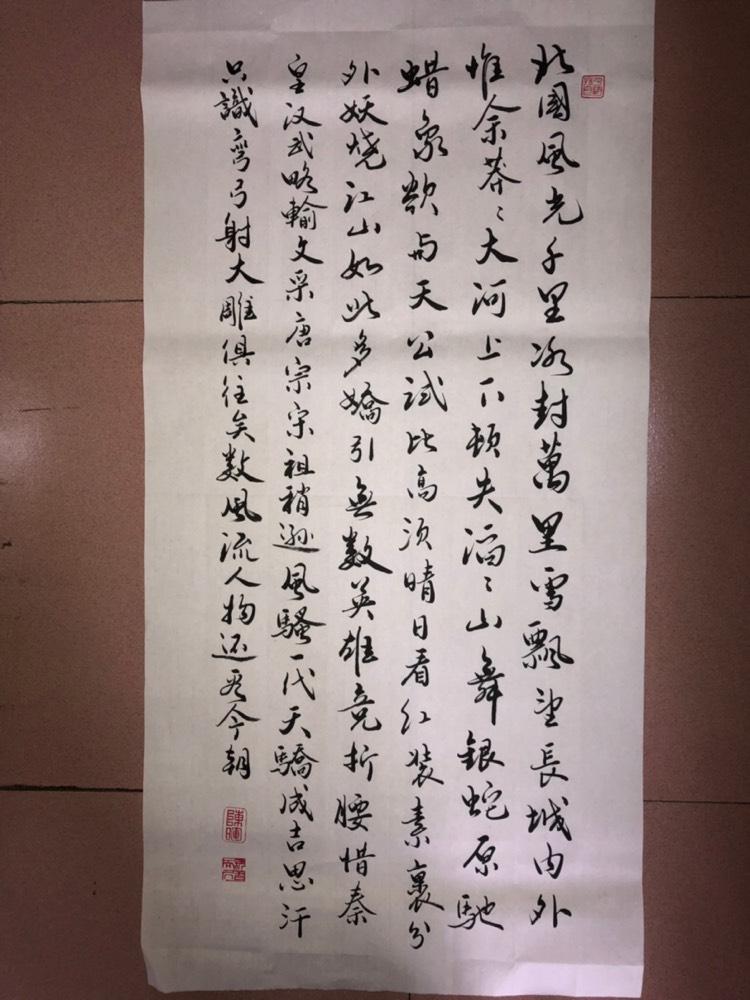 北國風光千里冰封萬里雪飄望長城内外
惟余莽〻大河上下頓失滔〻山舞銀蛇原馳
蜡象欲与天公試比高须晴日看红装素裹分
外妖娆江山如此多嬌引無数英雄竞折腰惜秦
皇汉武略輸文采唐宗宋祖稍逊風騷一代天驕成吉思汗
只識弯弓射大雕俱往矣数風流人物还看今朝
陳暉